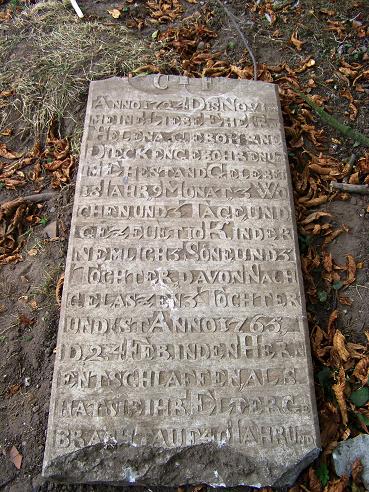 C F
ANNO 1724 DIS NOV IST
MEINE LIEBE EHEFR
HELENA GEBOHRNE
DIECKEN GEBOHREN U IM
EHESTAND GELEBE
3 MONAT 3 WO
CHEN UND 3 TAGE UND
GEZEUET 10 KINDER
NEMLICH 5 SÖNE UND 5
TÖCHTER DAVON NACH
GELASZEN 3 TÖCHTER
UND IST ANNO 1763,
D. 24 FEB. IN DEN HERN
ENTSCHLAFFEN ALS
HAT SIE IHR ELTER GE
BRACHT AUF 40 JAHR UND